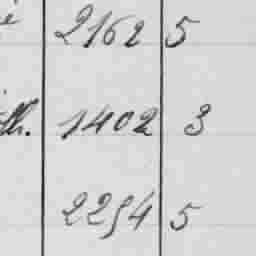 2162 5
th. 1402 3
2254 5